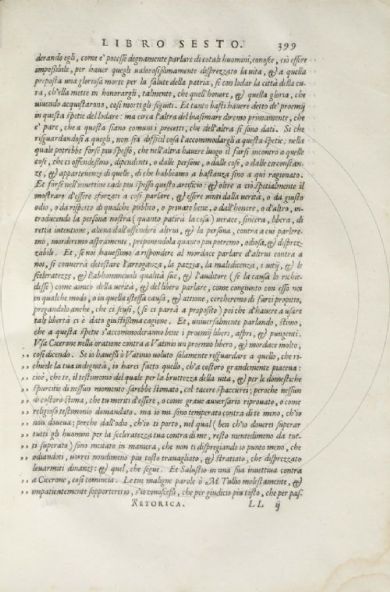 LIBRO SESTO. 399
derando egli, come e' potesse degnamente parlare di cotali huomini, conosce, ciò essere
impossibile, per hauer quegli valorosissimamente desprezzato la uita, & a quella
preposta una gloriosa morte per la salute della patria, si con lodar la città della cu-
ra, ch'ella mette in honorargli, talmente, che quell' honore, & quella gloria, che
uiuendo acquistarono, così morti gli seguiti. Et tanto basti hauere detto de' proemij
in questa spetie del lodare: ma circa l'altra del biasimare diremo primamente, che
e' pare, che a questa siano comuni i precetti, che dell'altra si sono dati. Si che
risguardandosi a quegli, non fia difficil cosa l'accommodargli a questa spetie; nella
quale potrebbe forse più spesso, che nell'altra hauere luogo il farsi incontro a quelle
cose, che ci offendessino, dipendenti, o dalle persone, o dalle cose, o dalle circonstan-
ze, & appartenenze di quelle, di che habbiamo a bastanza sino a qui ragionato.
Et forse nell'inuettiue cade più spesso questo artificio: & oltre a ciò spetialmente il
mostrare d'essere sforzati a così parlare, & essere uinti dalla uerità, o da giusto
odio, o da rispetto di qualche publico, o priuato bene, o dall'honore, o d'altro, in-
troducendo la persona nostra (quanto patirà la cosa) uerace, sincera, libera, di
retta intentione, aliena dall'offendere altrui, & la persona, contra a cui parlere-
mo, morderemo aspramente, proponendola quanto più potremo, odiosa, & disprez-
zabile. Et, se noi hauessimo a rispondere al mordace parlare d'altrui contra a
noi, si conuerrà detestare l'arroganza, la pazzia, la maldicenza, i uitij, & le
sceleratezze, & l'abbomineuoli qualità sue, & l'auditore (se la causa lo richie-
desse) come amico della uerità, & del libero parlare, come congiunto con esso noi
in qualche modo, o in quella istessa causa, & attione, cercheremo di farci propitio,
pregandolo anche, che ci scusi, (se ci parrà a proposito) poi che d'hauere a usare
tal libertà ci è dato giustissima cagione. Et, uniuersalmente parlando, stimo,
che a questa spetie s'accommoderanno bene i proemij liberi, aspri, & pungenti.
Usa Cicerone nella oratione contra a Vatinio un proemio libero, & mordace molto,
così dicendo. Se io hauessi ò Vatinio uoluto solamente risguardare a quello, che ri-
chiede la tua indegnità, io harei fatto quello, ch'a costoro grandemente piaceua:
cioè, che te, il testimonio del quale per la bruttezza della uita, & per le domestiche
sporcitie di nessun momento sarebbe stimato, col tacere spacciare; perochè nessun
di costoro stima, che tu meriti d'essere, o come graue auuersario riprouato, o come
religioso testimonio domandato. ma io mi son temperato contra di te meno, ch'io
non doueua; perche dall'odio, ch'io ti porto, nel qual (ben ch'io douerei superar
tutti gli huomini per la sceleratezza tua contra di me, resto nientedimeno da tut-
ti superato) sono incitato in maniera, che non ti dispregiando io punto meno, che
odiandoti, uorrei nondimeno più tosto trauagliato, & stratiato, che disprezzato
leuarmiti dinanzi: & quel, che segue. Et Salustio in una sua inuettiua contra
a Cicerone, così comincia. Le tue maligne parole ò M. Tullio molestamente, &
impatientemente sopporterei io, s'io conoscessi, che per giudicio più tosto, che per paz-
RETORICA. LL ij